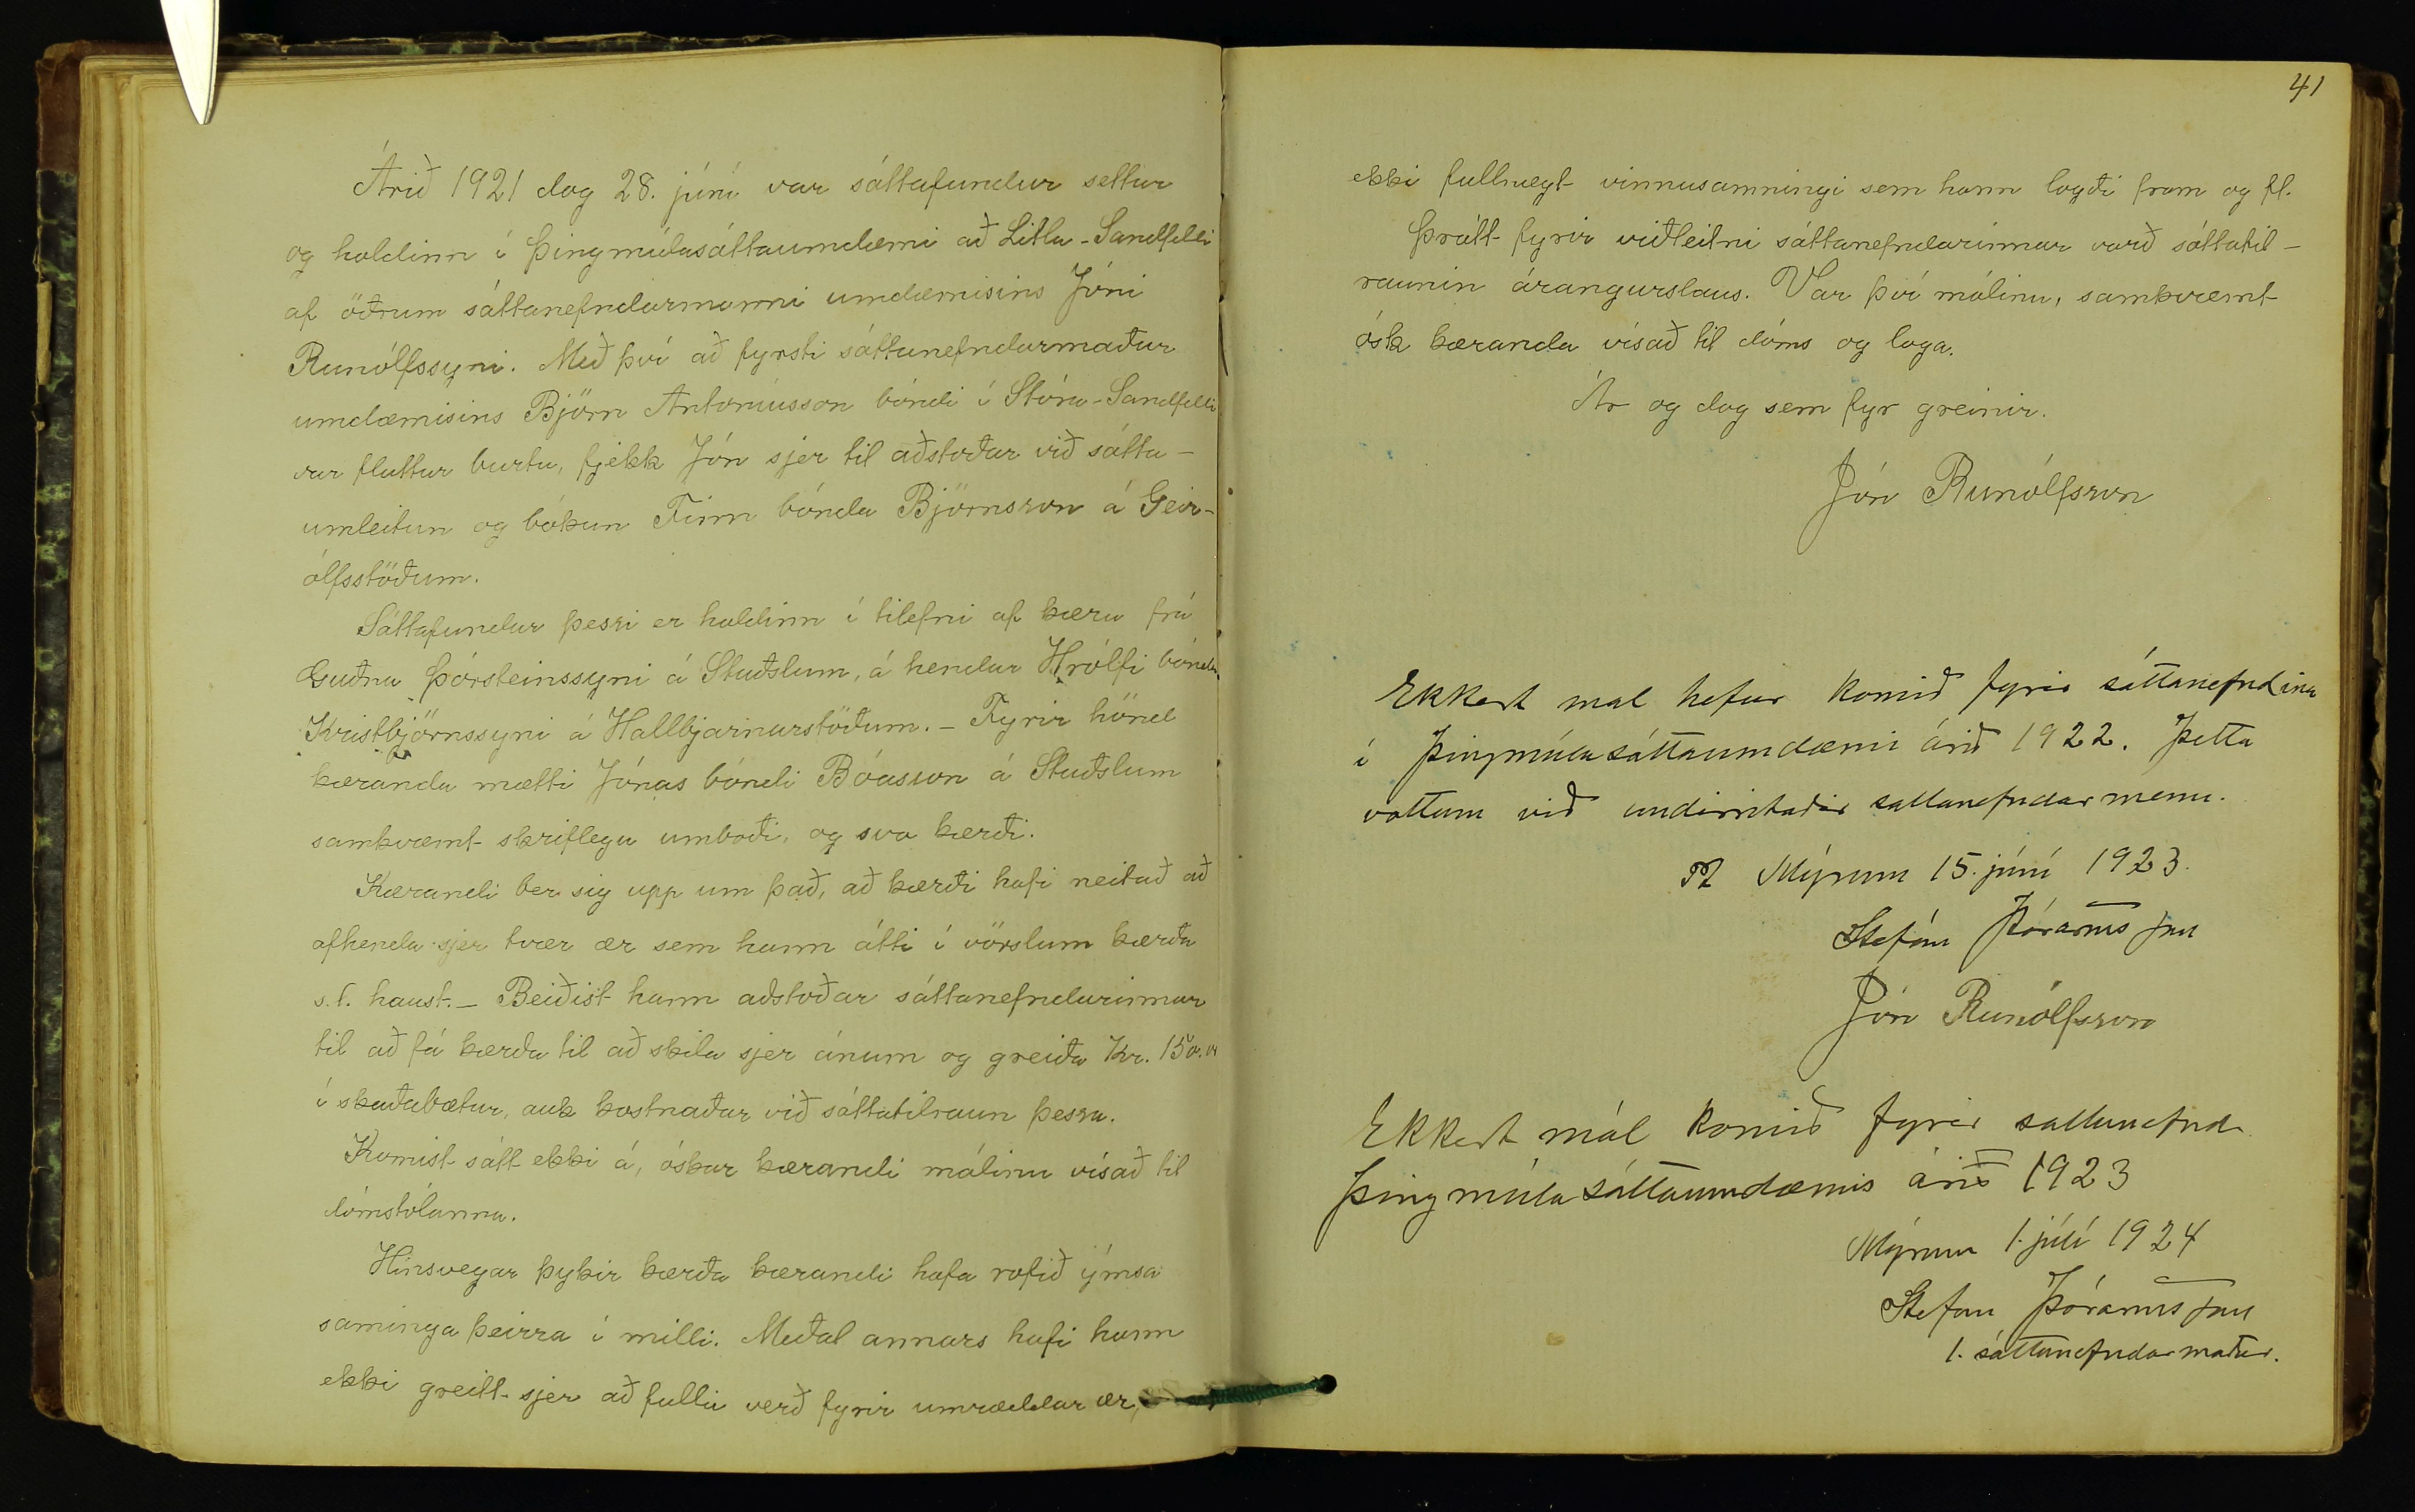 Árið 1921 dag 28. júní var sáttafundur settur
og haldinn í Þingmúlasáttaumdæmi að Litla-Sandfelli
af öðrum sáttanefndarmanni umdæmisins Jóni
Runólfssyni. Með því að fyrsti sáttanefndarmaður
umdæmisins Björn Antoníusson bóndi í Stóra-Sandfelli
var fluttur burtu, fjekk Jón sjer til aðstoðar við sátta-
umleitun og bókun Finn bónda Björnsson á Geir-
ólfsstöðum.
Sáttafundur þessi er haldinn í tilefni af kæru frá
Guðna Þórsteinssyni á Stuðlum, á hendur Hrólfi bónda
Kristbjörnssyni á Hallbjarnarstöðum. - Fyrir hönd
kæranda mætti Jónas bóndi Bóasson á Stuðlum
samkvæmt skriflegu umboði, og svo kærði.
Kærandi ber sig upp um það, að kærði hafi neitað að
afhenda sjer tvær ær sem hann átti í vörslum kærða
s.l. haust. - Beiðist hann aðstoðar sáttanefndarinnar
til að fá kærða til að skila sjer ánum og greiða Kr. 150.00
í skaðabætur, auk kostnaðar við sáttatilraun þessa.
Komist sátt ekki á, óskar kærandi málinu vísað til
dómstólanna.
Hinsvegar þykir kærða kærandi hafa rofið ýmsa
saminga þeirra í milli. Meðal annars hafi hann
ekki greitt sjer að fullu verð fyrir umræddar ær,
41
ekki fullnægt vinnusamningi sem hann lagði fram og fl.
Þrátt fyrir viðleitni sáttanefndarinnar varð sáttatil-
raunin árangurslaus. Var því málinu, samkvæmt
ósk kæranda vísað til dóms og laga.
Ár og dag sem fyr greinir.
Jón Runólfsson
Ekkert mál hefur komið fyrir sáttanefndina
í Þingmúlasáttaumdæmi árið 1922. Þetta
vottum við undirritaðir sáttanefndarmenn.
Mýrum 15. júní 1923.
Stefán Þórarinsson
Jón Runólfsson
Ekkert mál komið fyrir sáttanefnd
Þingmúlasáttaumdæmis árið 1923
Mýrum 1. júlí 1924
Stefán Þórarinsson
1. sáttanefndarmaður.